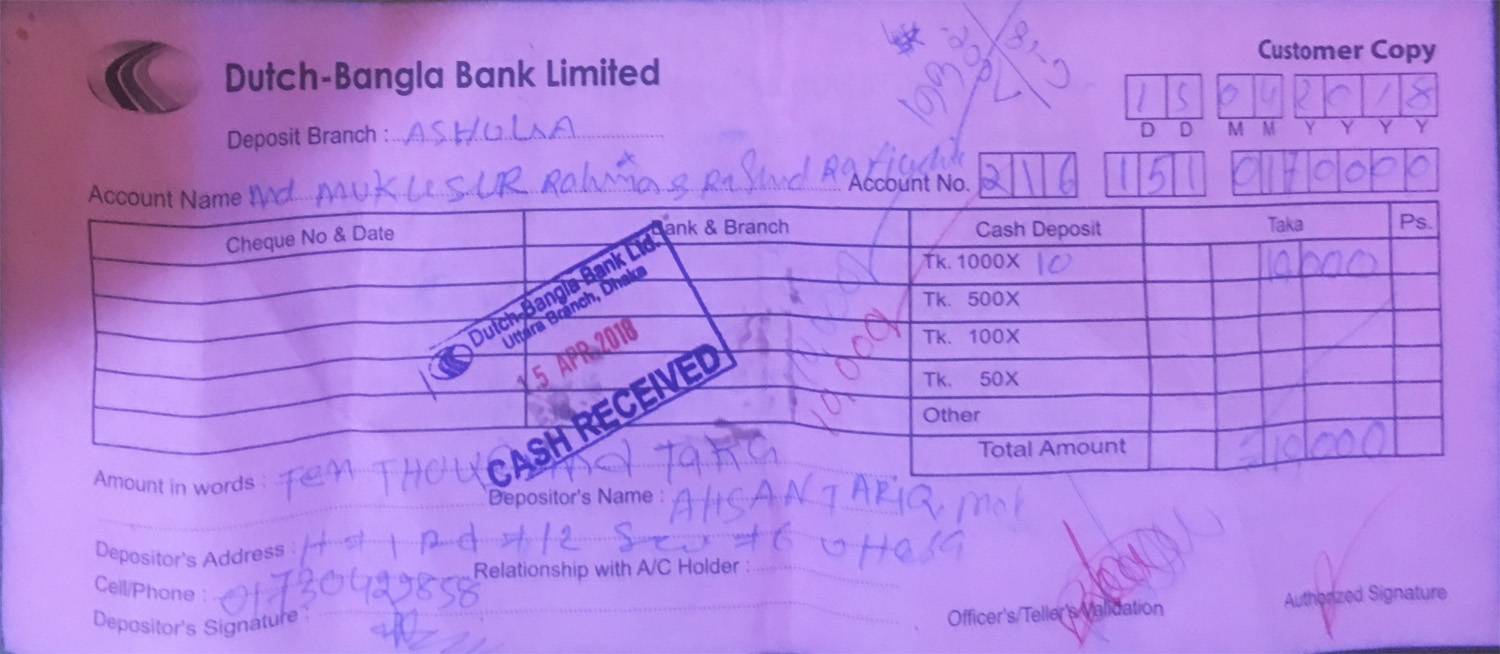 Customer Copy
Dutch-Bangla Bank Limited
15 04 2018
D D M M Y Y Y Y
Deposit Branch : ASHULIA
Account Name Md MUKLESUR Rahman & Rashid Account No. 216 151 0170000
Cheque No & Date Bank & Branch Cash Deposit Taka Ps.
Tk. 1000X 10 10,000
Tk. 500X
Tk. 100X
Tk. 50X
Other
Total Amount 10,000
Dutch-Bangla Bank Ltd.
Uttara Branch, Dhaka
15 APR 2018
CASH RECEIVED
10,000
Amount in words : Ten THOUSAND Taka
Depositor's Name : AHSAN TARIQ
Depositor's Address : H # 1 Rd # 12 Sec # 6 Uttara
Cell/Phone : 01730429858 Relationship with A/C Holder :
Depositor's Signature :
Officer's/Teller's Validation
Authorized Signature